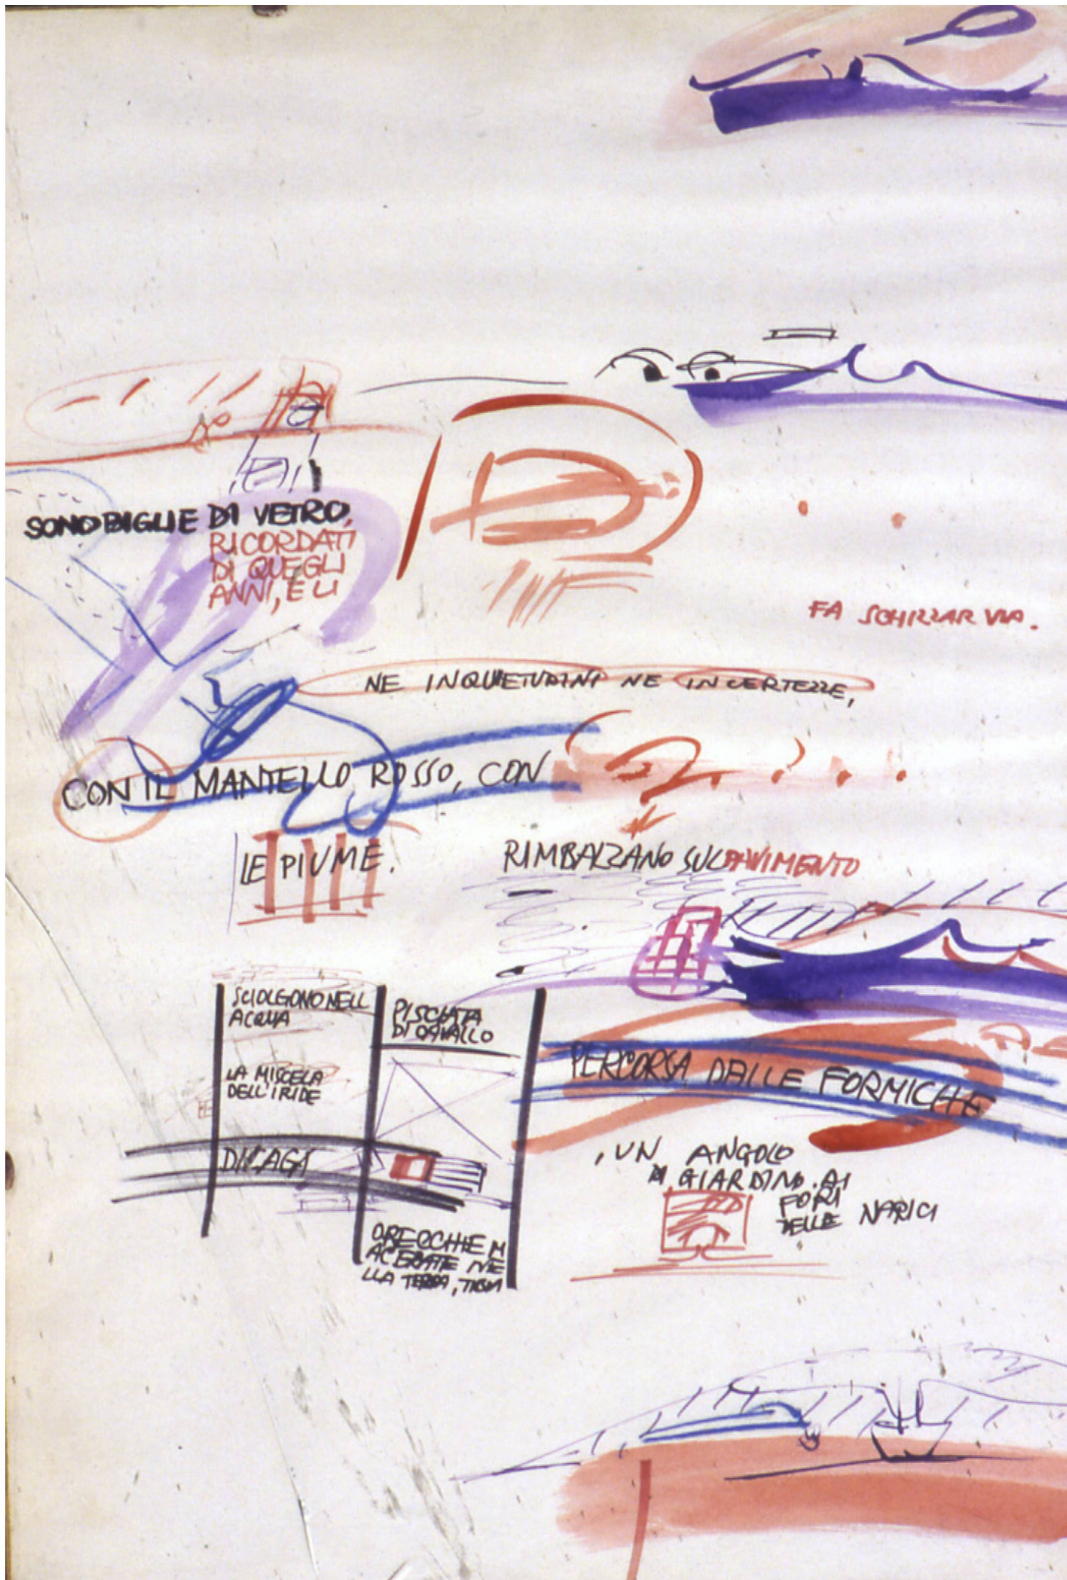 SONO BIGLIE DI VETRO,
RICORDATI
DI QUEGLI
ANNI, E LI
FA SCHIZZAR VIA.
NE INQUIETUDINI NE INCERTEZZE,
CON IL MANTELLO ROSSO, CON
LE PIUME.
RIMBALZANO SUL PAVIMENTO
SCIOLGONO NELL
ACQUA
LA MISCELA
DELL'IRIDE
PISCIATA
DI CAVALLO
ORECCHIE M
ACERATE NE
LLA TERRA,
PERCORSA DALLE FORMICHE
, UN ANGOLO
DI GIARDINO. AI
FORI
DELLE NARICI